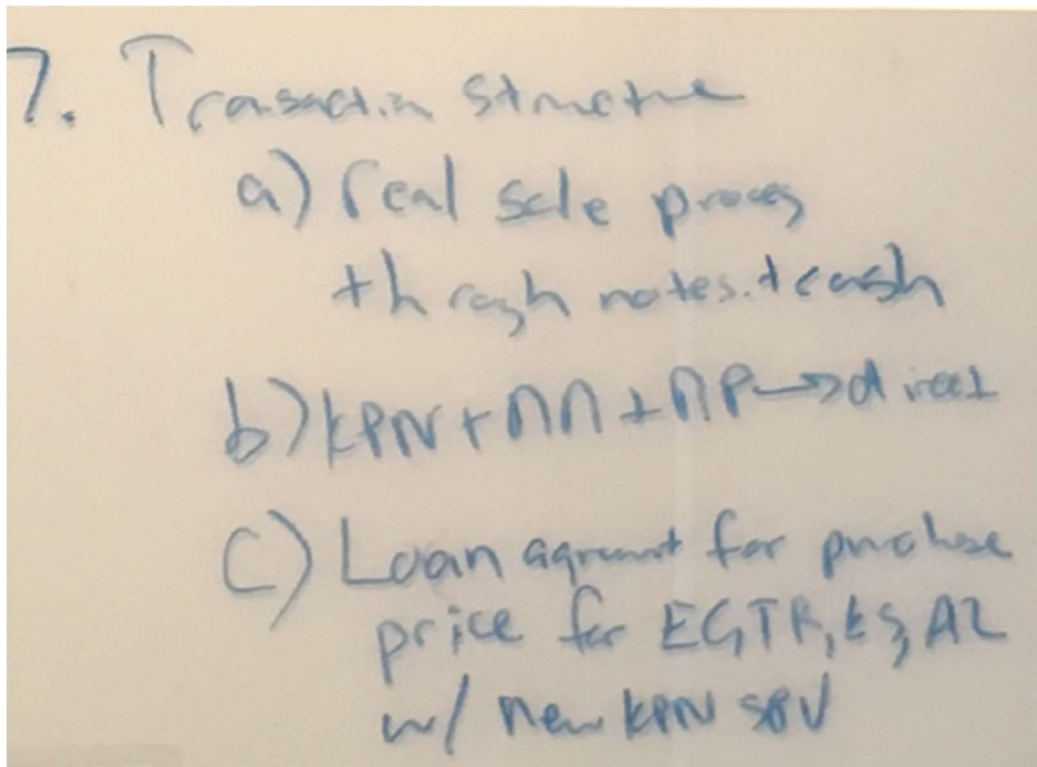 7. Transaction structure
a) real sale process
through notes + cash
b) KPN + MM + MP → direct
c) Loan agrmnt for purchase
price for EG, TR, ES, AZ
w/ new KPN SPV